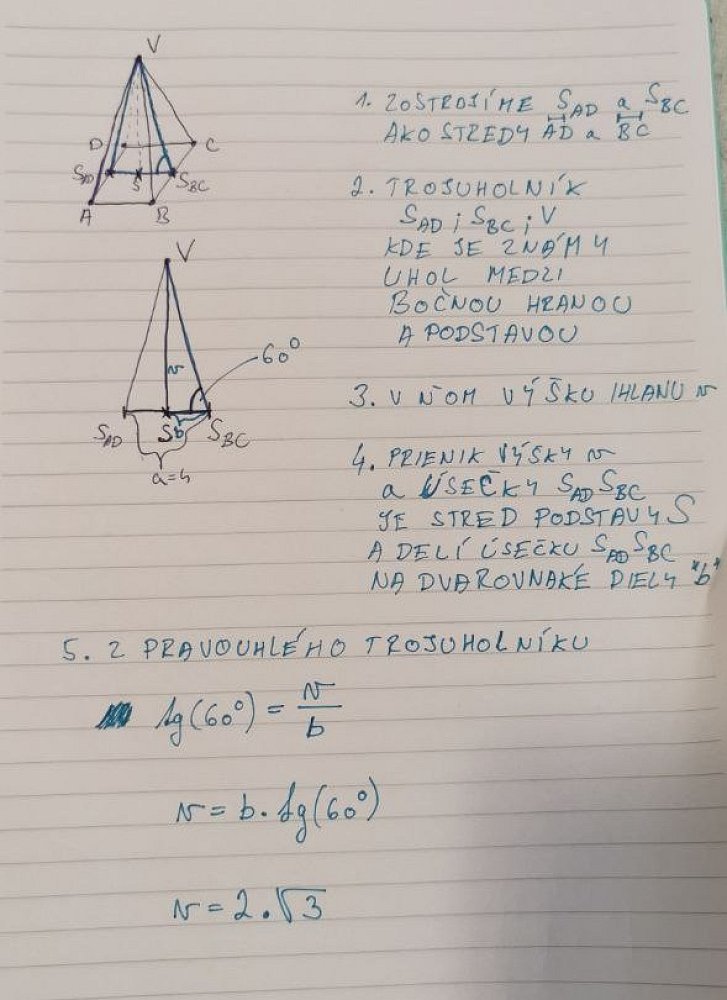 V
D
C
SAD
S
SBC
A
B
1. ZOSTROJÍME SAD a SBC
AKO STREDY AD a BC
2. TROJUHOLNÍK
SAD ; SBC ; V
KDE JE ZNÁMY
UHOL MEDZI
BOČNOU HRANOU
A PODSTAVOU
V
60°
v
SAD
S
b
SBC
a=4
3. V ŇOM VÝŠKU IHLANU v
4. PRIENIK VÝŠKY v
a ÚSEČKY SAD SBC
JE STRED PODSTAVY S
A DELÍ ÚSEČKU SAD SBC
NA DVA ROVNAKÉ DIELY "b"
5. Z PRAVOUHLÉHO TROJUHOLNÍKU
tg(60°) = v/b
v = b . tg(60°)
v = 2 . √3